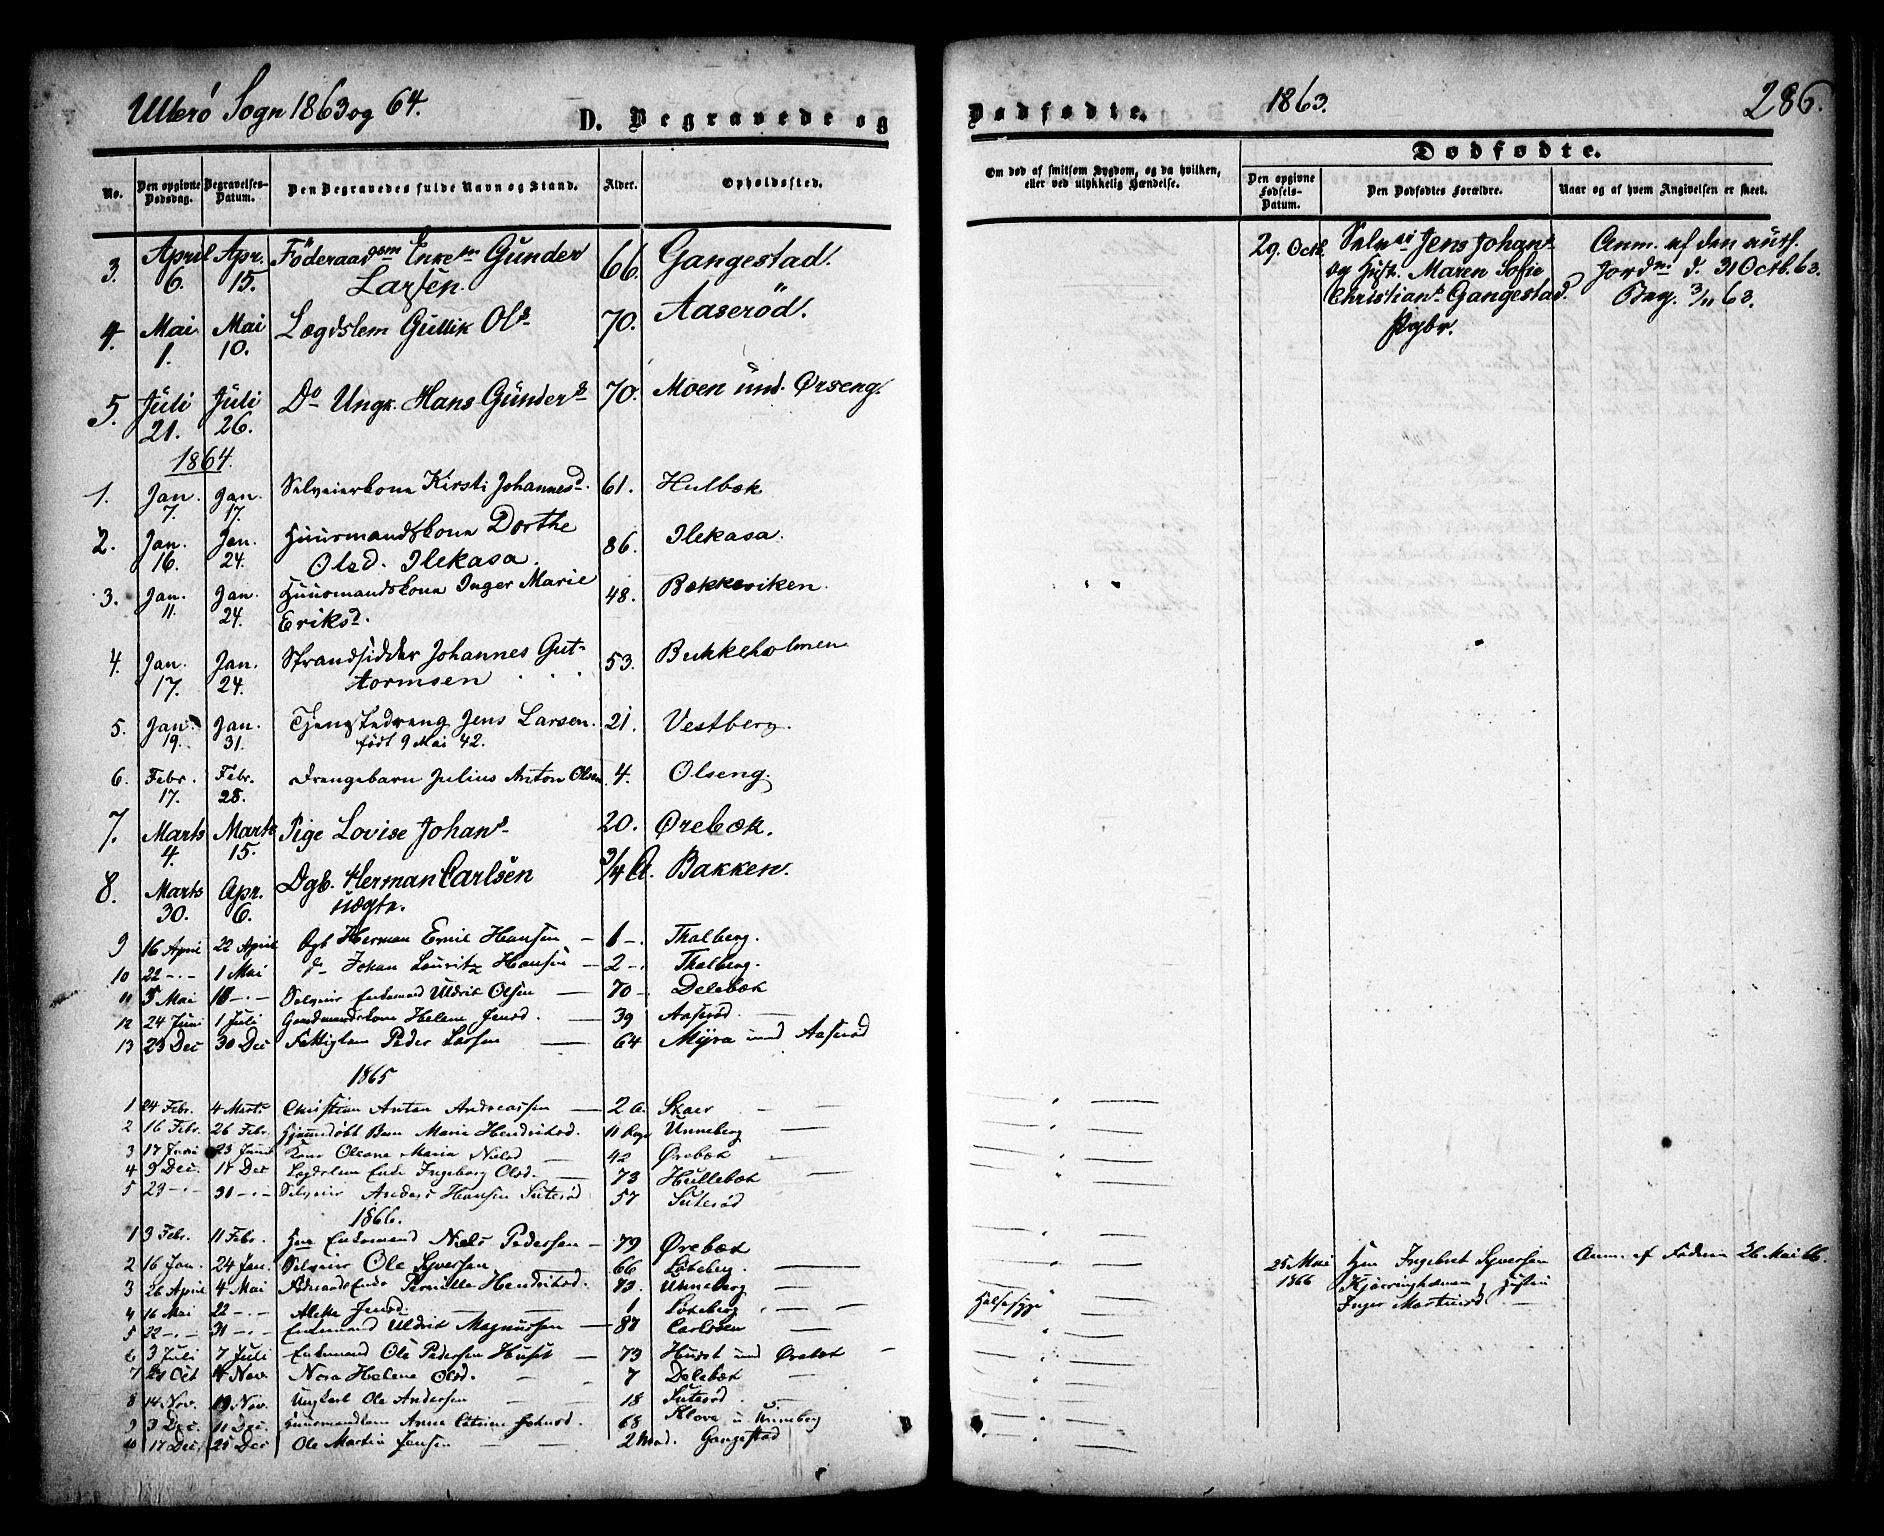 Ullerö Sogn 1863 og 64.
D. Begravede og
No.
Den opgivne Dødsdag.
Begravelses-Datum.
Den Begravedes fulde Navn og Stand.
Alder.
Opholdsted.
3. April 6. Apr. 15. Föderaads Enke Gunder Larsen. 66. Gangestad.
4. Mai 1. Mai 10. Lægdslem Gullik Ols 70. Aaserød.
5. Juli 21. Juli 26. Do Ungk. Hans Gunders 70. Moen und. Ørseng.
1864.
1. Jan. 7. Jan. 17. Selveierkone Kirsti Johannesd. 61. Hulbæk
2. Jan. 16. Jan. 24. Huusmandskone Dorthe Olsd. Ilekasa. 86. Ilekasa.
3. Jan. 11. Jan. 24. Huusmandskone Inger Marie Eriksd. 48. Bækkeviken.
4. Jan. 17. Jan. 24. Strandsidder Johannes Guttormsen 53. Bukkeholmen
5. Jan. 19. Jan. 31. Tjenestedreng Jens Larsen. 21. Vestberg.
født 9 Mai 42.
6. Febr. 17. Febr. 28. Drengebarn Julius Anton Olsen 4. Olseng.
7. Marts 4. Marts 15. Pige Lovise Johans 20. Ørebæk.
8. Marts 30. Apr. 6. Dgb. Herman Carlsen uægte. 3/4 A. Bakken.
9 16 April 22 April Dgb Herman Emil Hansen – 1 –. Thalberg.
10 22 –·– 1 Mai d– Johan Lauritz Hansen – 2 –. Thalberg.
11 5 Mai 18 –·– Selveier Enkemand Uldrik Olsen — 70 – Delebæk
12 24 Juni 1 Juli Gaardmandskone Helene Jensd. — 39 Aaserød. —
13 23 Dec 30 Dec Fattiglem Peder Larsen — 64 Myra und Aaserød
1865
1 24 Febr. 4 Marts Christian Anton Andreassen — 2 A. Skaer — —
2 16 Febr. 26 Febr. Hjemmedøbt Barn Marie Hendriksd. 11 Dage Unneberg —
3 17 Juni 23 Juni Kone Oleane Maria Nielsd — 42 Ørebæk —
4 9 Dec. 17 Dec Lægdslem Enke Ingeborg Olsd. — 73 Hullebæk
5 23 –·– 31 –·– Selveier Anders Hansen Suterød 57 Suterød
1866.
1 3 Febr. 11 Febr. Hm Enkemand Niels Pedersen — 79 Ørebæk
2 16 Jan. 24 Jan. Selveier Ole Syversen 66 Løkeberg. —
3 26 April 4 Mai Föderaads Enke Pernille Hendriksd. 83. Unneberg —
4 16 Mai 22 –·– Jensd. — 1 Løkeberg. — —
5 22 –·– 31 –·– Enkemand Uldrik Magnussen — 87 Carlsøen —
6 3 Juli 7 Juli Enkemand Ole Pedersen Huset — 73 Huset und Ørebæk —
7 21 Oct 4 Nov. Nora Helene Olsd. — 7 Delebæk —
8 14 Nov. 19 Nov. Ungkarl Ole Andersen — 18 Suterød. —
9 3 Dec. 11 Dec. Huusmandskone Anne Catrine Johnsd. 68 Klova u. Unneberg
10 17 Dec. 25 Dec Ole Martin Jensen — — 2 Maad. Gangestad
Dødfødte.
1863.
286.
Om død af smitsom Sygdom, og da hvilken, eller ved ulykkelig Hændelse.
Dødfødte.
Den opgivne Fødsels-Datum.
Den Dødfødtes Forældre.
Naar og af hvem Angivelsen er skeet.
29. Octb. Selv Jens Johans
og Hust. Maren Sofie
Christians Gangestad.
Pgbr.
Anm. af den auth.
Jordm. d. 31 Octb. 63.
Beg. 3/11 63.
Halssyge
25 Mai 1866 Hm Ingebret Syversen
Kjærringhavnen og Hustru
Inger Martinsd. —
Anm. af Faderen 26 Mai 66.